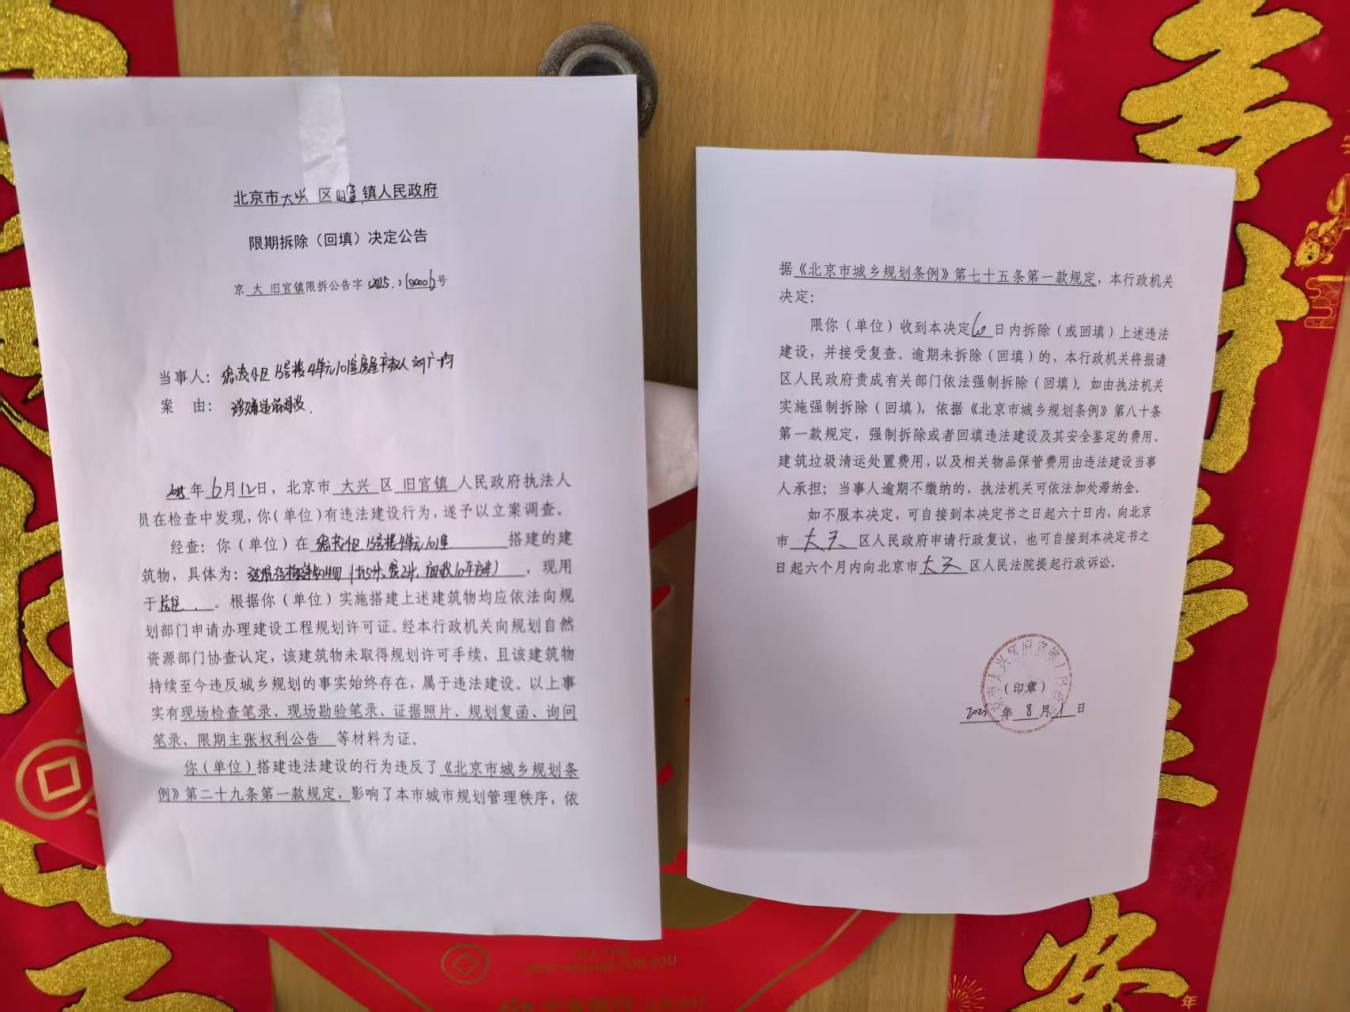 北京市大兴区旧宫镇人民政府
限期拆除（回填）决定公告
京 大 旧宫镇限拆公告字 2025. 号
当事人： 小区15号楼4单元101室房屋产权人
案 由： 涉嫌违法建设.
2025年6月12日，北京市 大兴 区 旧宫镇 人民政府执法人
员在检查中发现，你(单位)有违法建设行为，遂予以立案调查。
经查：你(单位)在 小区15号楼4单元101室 搭建的建
筑物，具体为： ，现用
于 。根据你(单位)实施搭建上述建筑物均应依法向规
划部门申请办理建设工程规划许可证。经本行政机关向规划自然
资源部门协查认定，该建筑物未取得规划许可手续，且该建筑物
持续至今违反城乡规划的事实始终存在，属于违法建设。以上事
实有现场检查笔录、现场勘验笔录、证据照片、规划复函、询问
笔录、限期主张权利公告 等材料为证。
你(单位)搭建违法建设的行为违反了《北京市城乡规划条
例》第二十九条第一款规定，影响了本市城市规划管理秩序，依
据《北京市城乡规划条例》第七十五条第一款规定，本行政机关
决定：
限你（单位）收到本决定 日内拆除（或回填）上述违法
建设，并接受复查。逾期未拆除（回填）的，本行政机关将报请
区人民政府责成有关部门依法强制拆除（回填）。如由执法机关
实施强制拆除（回填），依据《北京市城乡规划条例》第八十条
第一款规定，强制拆除或者回填违法建设及其安全鉴定的费用、
建筑垃圾清运处置费用，以及相关物品保管费用由违法建设当事
人承担；当事人逾期不缴纳的，执法机关可依法加处滞纳金。
如不服本决定，可自接到本决定书之日起六十日内，向北京
市 大兴 区人民政府申请行政复议，也可自接到本决定书之
日起六个月内向北京市 大兴 区人民法院提起行政诉讼。
（印章）
2025年 8 月 1 日